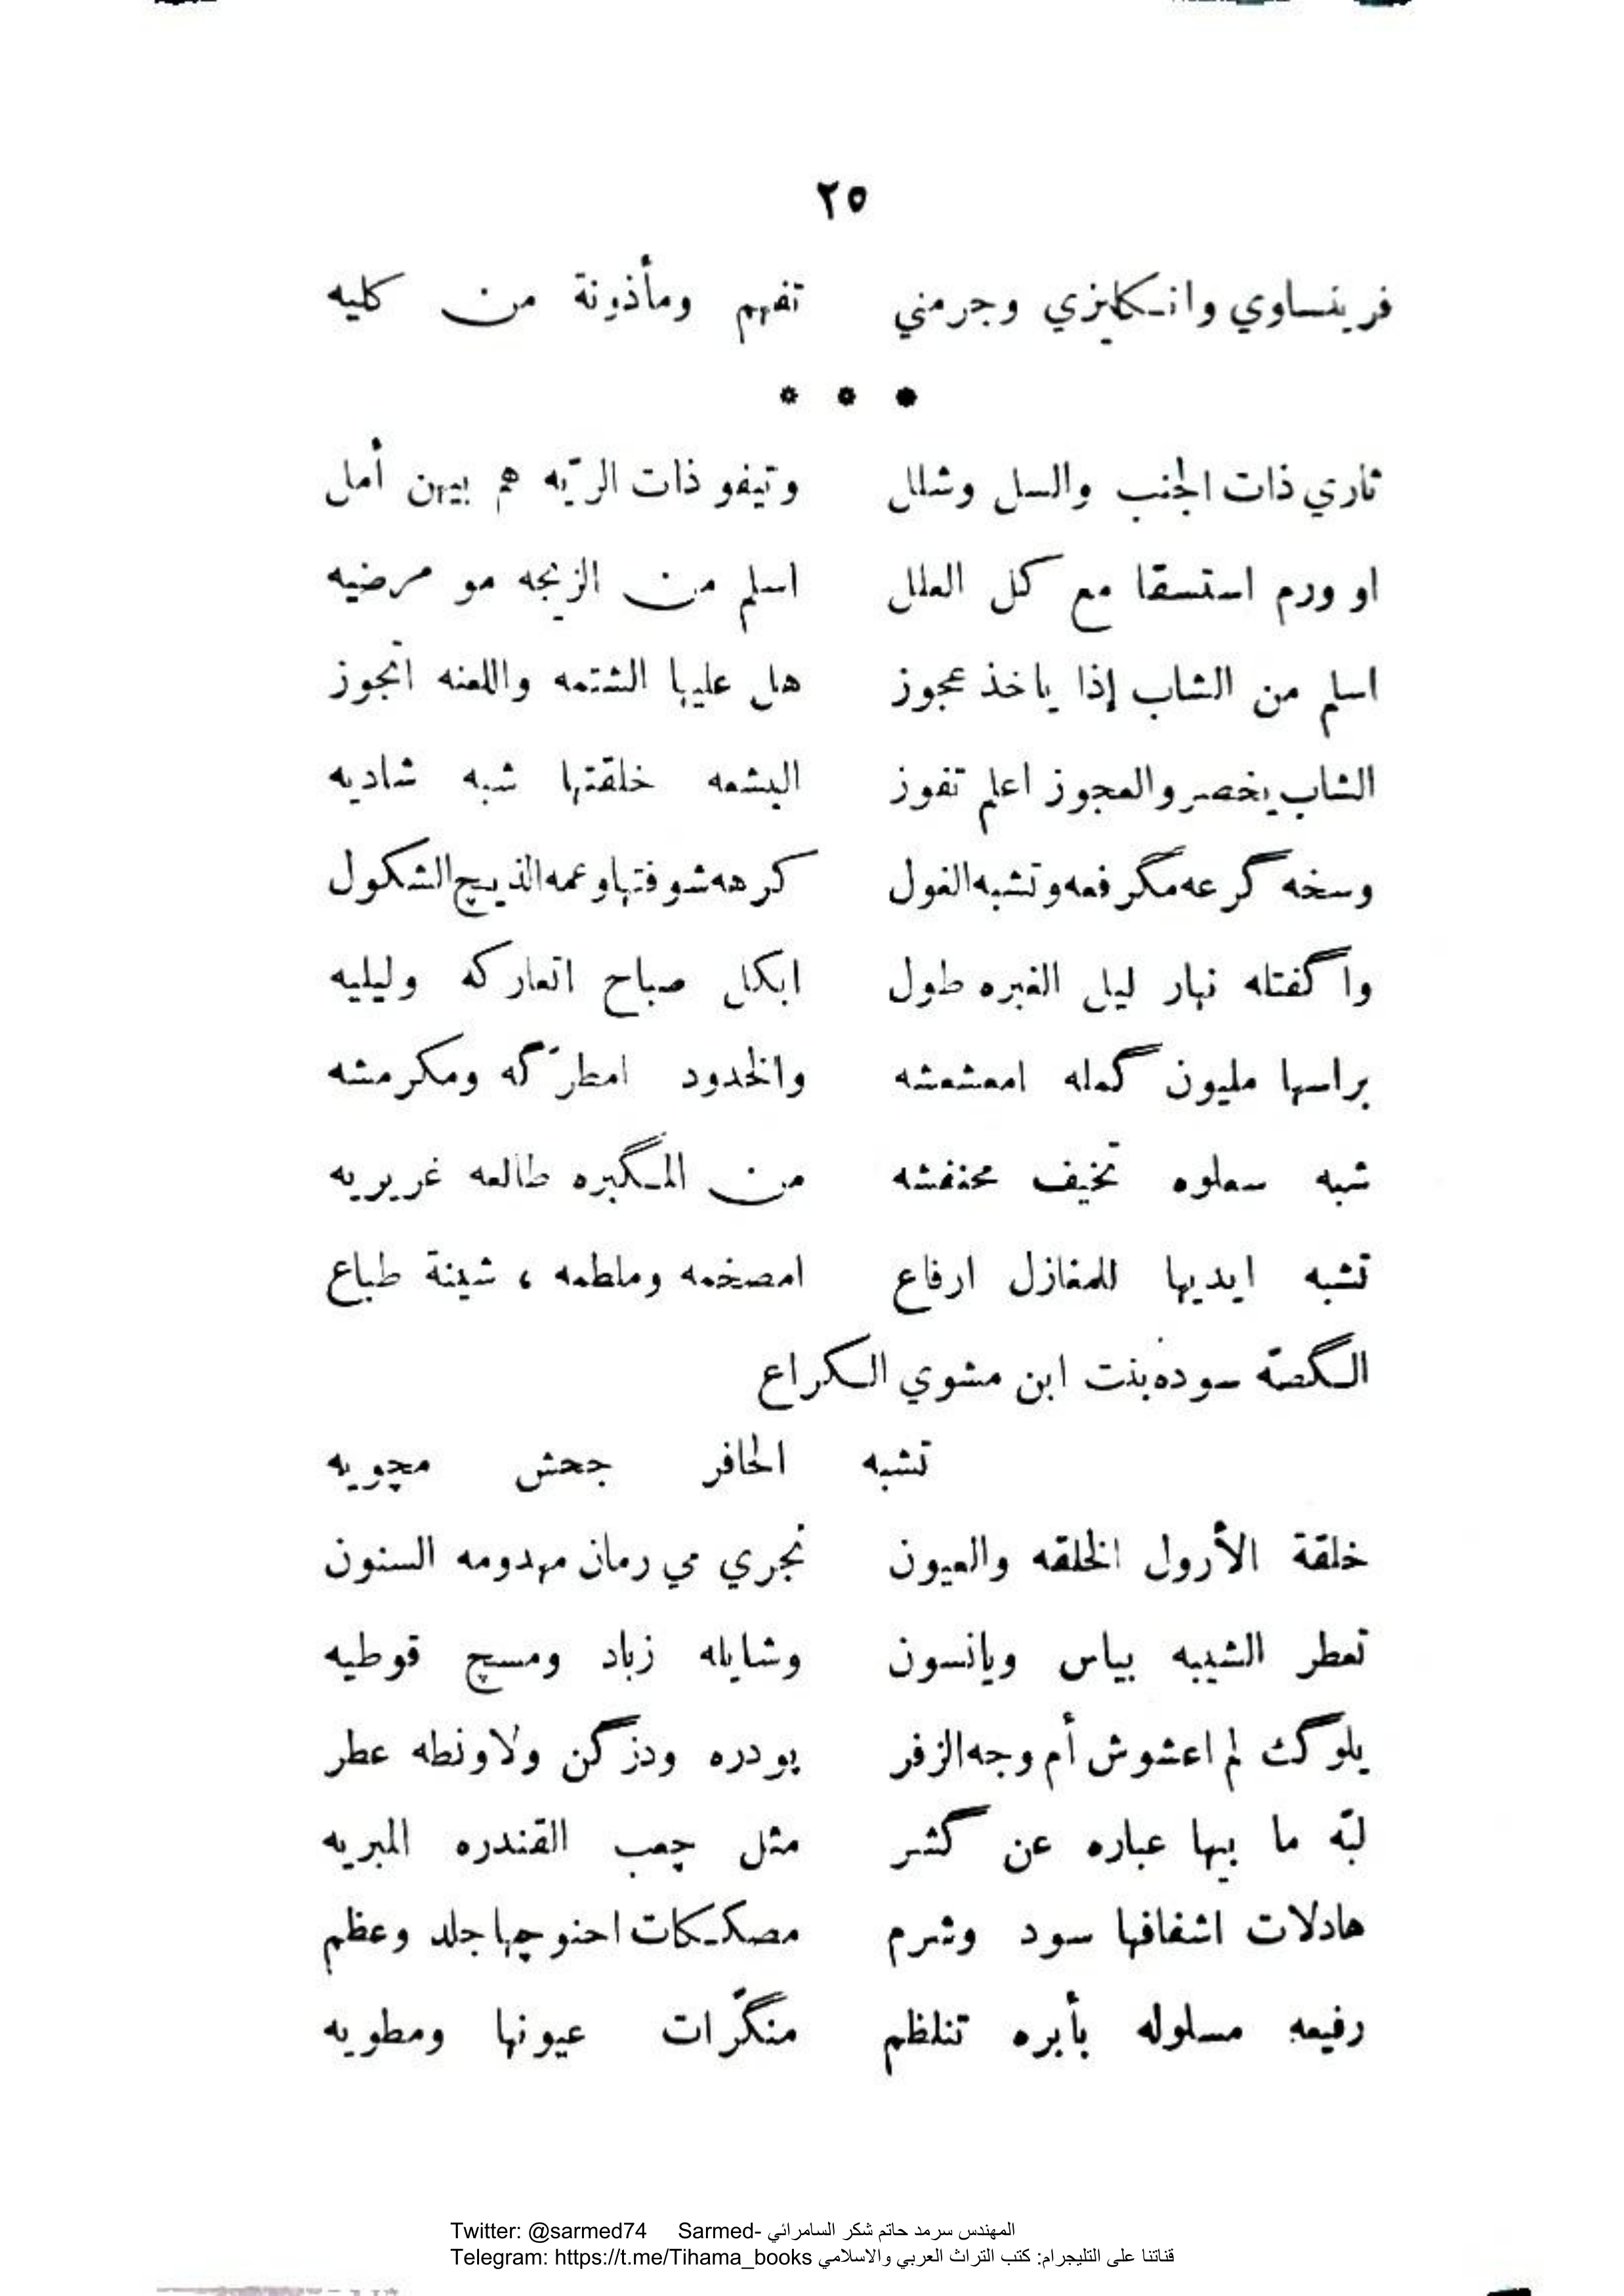 ٢٥
فرينساوي وانـكليزي وجرمني تفهم ومأذونة من كليه
* * *
ثاري ذات الجنب والسل وشلل وتيفو ذات الريّه هم بيهن أمل
او ورم استسقا مع كل العلل اسلم من الزيجه مو مرضيه
اسلم من الشاب إذا ياخذ عجوز هل عليها الشتمه واللعنه اتجوز
الشاب يخصر والعجوز اعلم تفوز البشعه خلقتها شبه شاديه
وسخه گرعه مگرفعه وتشبه الغول كرهه شوفتها وعمه الذيچ الشكول
واگفتله نهار ليل الغبره طول ابكل صباح اتعاركه وليليه
براسها مليون گمله امعشعشه والخدود امطرّگه ومكرمشه
شبه سعلوه تخيف مخنفشه من المـگبره طالعه غريريه
تشبه ايديها للمغازل ارفاع امصخمه وملطمه ، شينة طباع
الـگصّه سوده بنت ابن مشوي الـكراع
تشبه الحافر جحش مچويه
خلقة الأرول الخلقه والعيون تجري مي رمان مهدومه السنون
تعطر الشيبه بياس ويانسون وشايله زباد ومسچ قوطيه
يلوگ لم اعشوش أم وجه الزفر بودره ودزگن ولاونطه عطر
لبّه ما بيها عباره عن گشر مثل چعب القندره المبريه
هادلات اشفافها سود وشرم مصكـكات احنوچها جلد وعظم
رفيعه مسلوله بأبره تنلظم منگّرات عيونها ومطويه
Twitter: @sarmed74 Sarmed- المهندس سرمد حاتم شكر السامرائي
Telegram: https://t.me/Tihama_books قناتنا على التليجرام: كتب التراث العربي والاسلامي